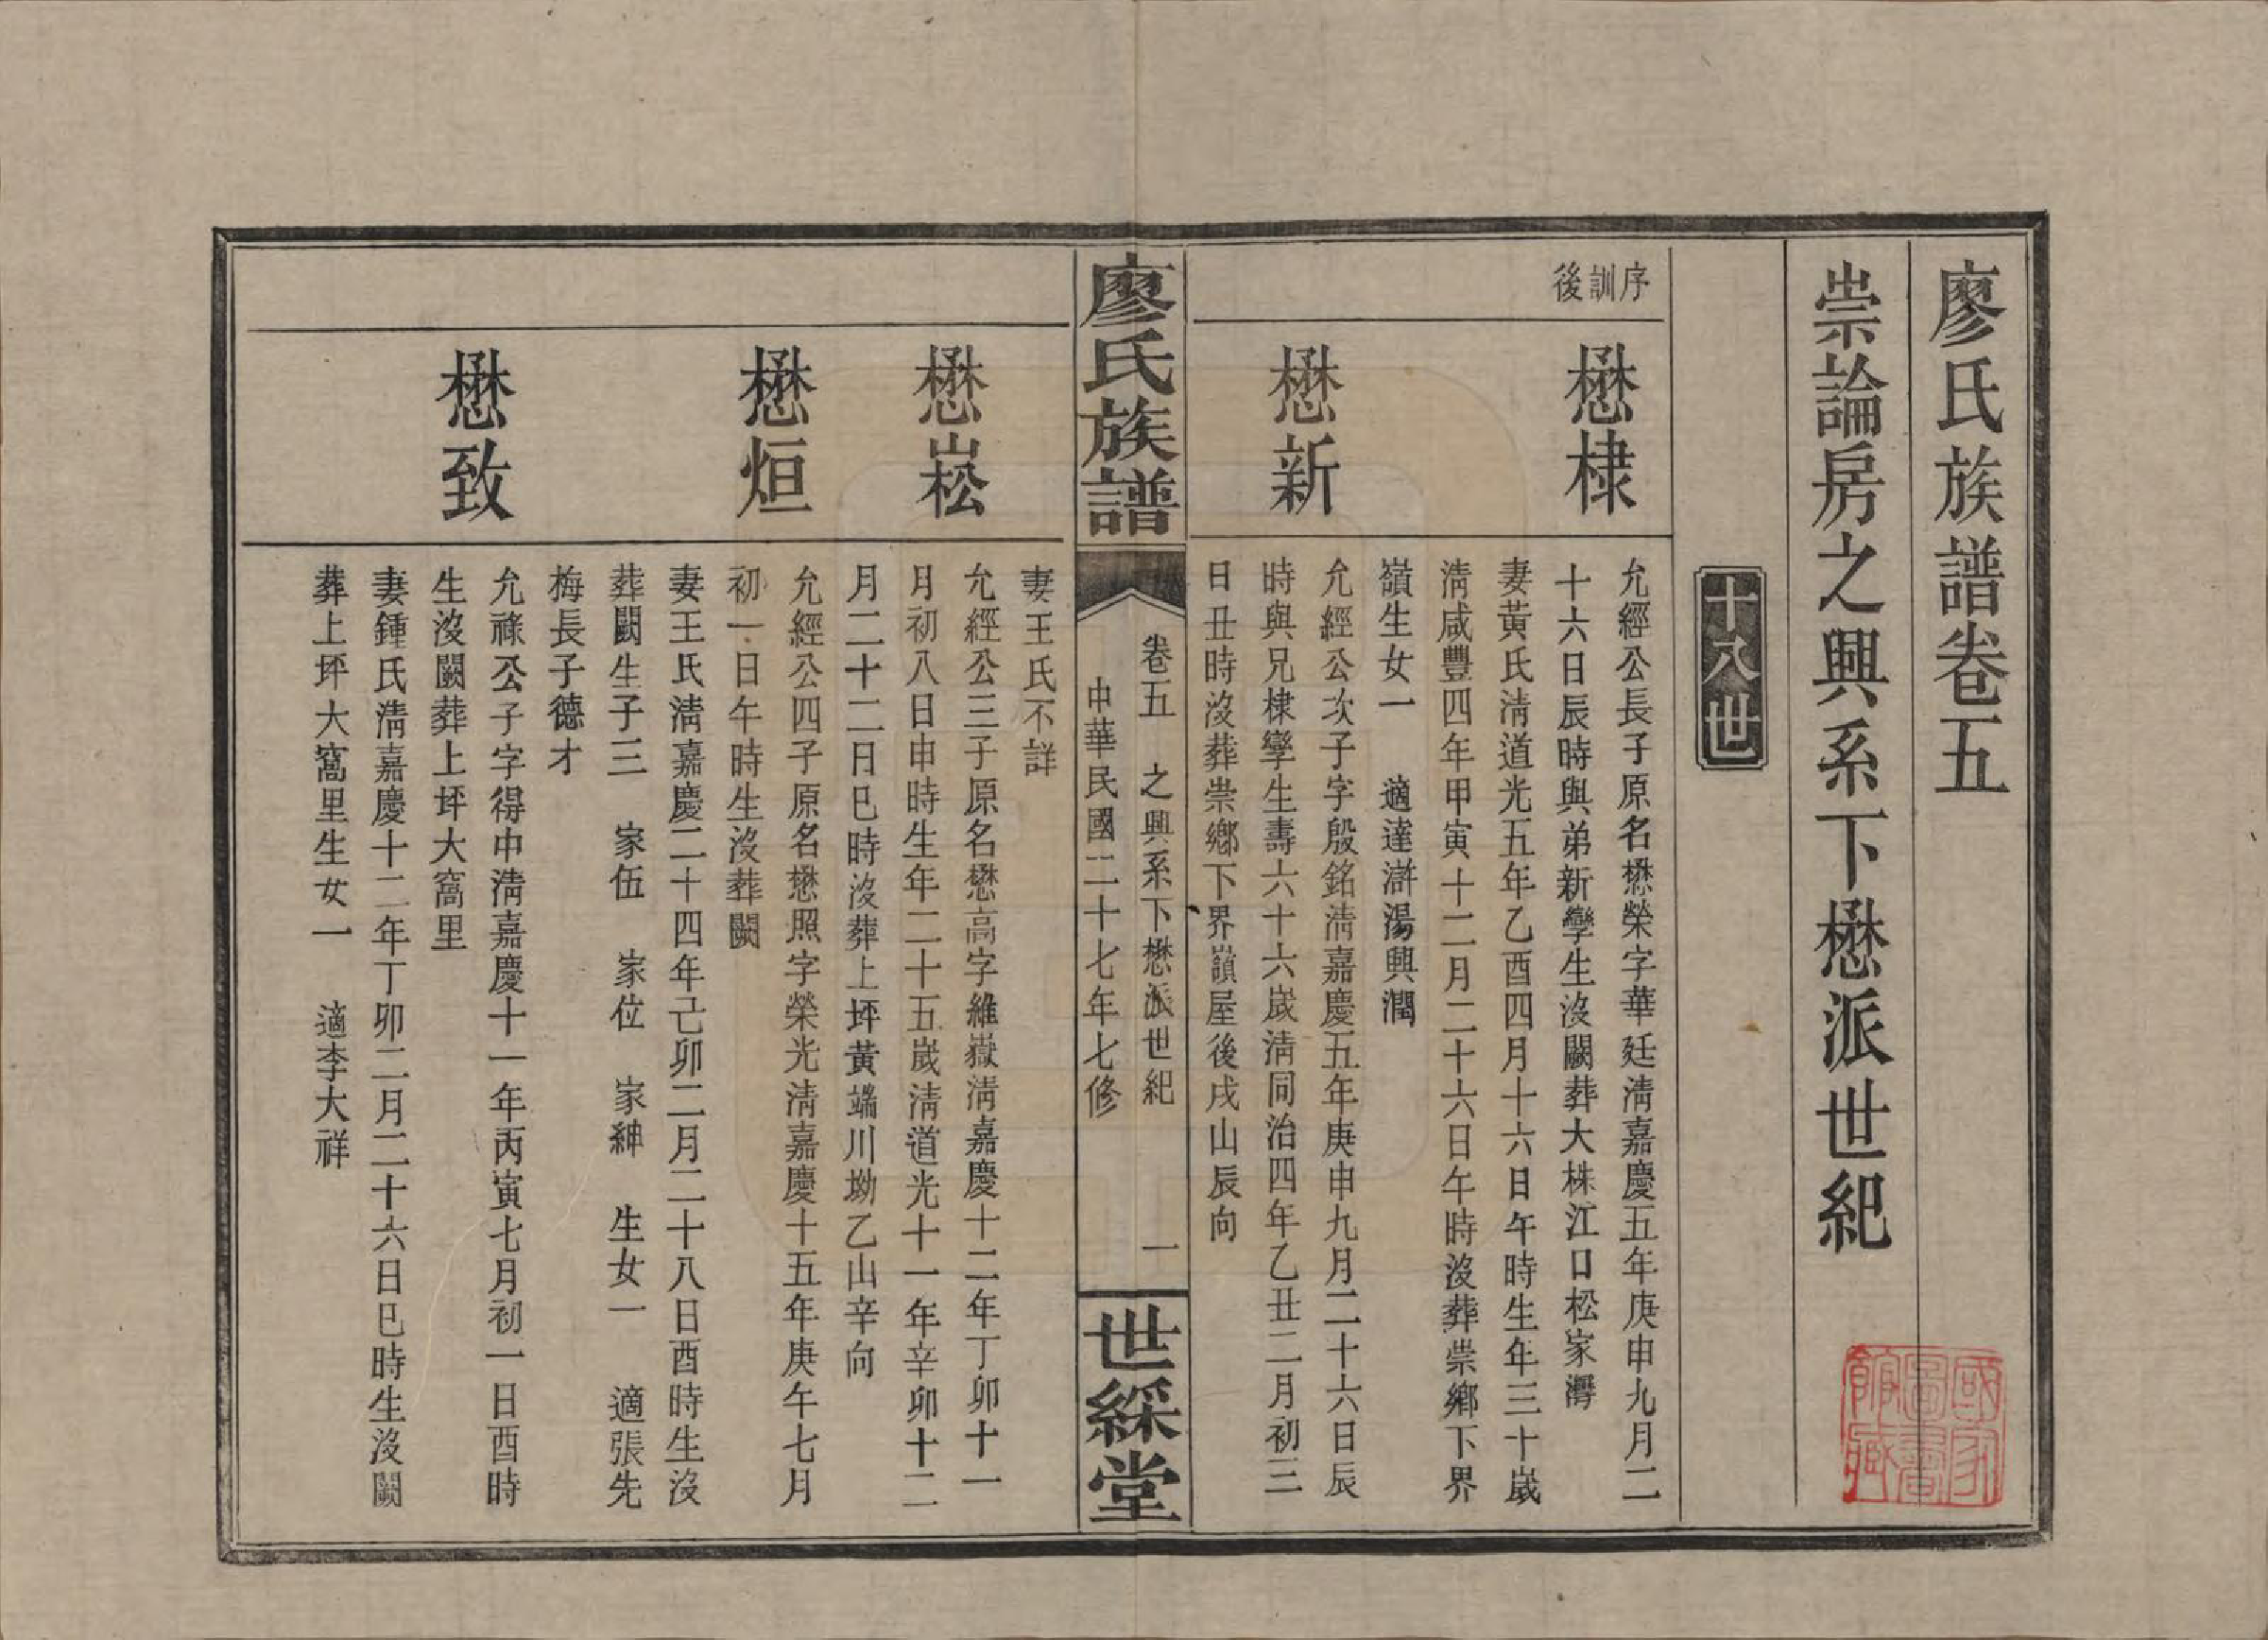 廖氏族譜卷五
崇論房之興系下懋派世紀
十八世
序訓後
懋棣
允經公長子原名懋榮字華廷淸嘉慶五年庚申九月二
十六日辰時與弟新孿生沒闕葬大株江口松家灣
妻黃氏淸道光五年乙酉四月十六日午時生年三十歲
淸咸豐四年甲寅十二月二十六日午時沒葬崇鄉下界
嶺生女一　適達滸湯興潤
懋新
允經公次子字殷銘淸嘉慶五年庚申九月二十六日辰
時與兄棣孿生壽六十六歲淸同治四年乙丑二月初三
日丑時沒葬崇鄉下界嶺屋後戌山辰向
廖氏族譜
卷五　之興系下懋派世紀　一
中華民國二十七年七修
世綵堂
妻王氏不詳
懋崧
允經公三子原名懋高字維嶽淸嘉慶十二年丁卯十一
月初八日申時生年二十五歲淸道光十一年辛卯十二
月二十二日巳時沒葬上坪黃端川坳乙山辛向
懋烜
允經公四子原名懋照字榮光淸嘉慶十五年庚午七月
初一日午時生沒葬闕
妻王氏淸嘉慶二十四年己卯二月二十八日酉時生沒
葬闕生子三　家伍　家位　家紳　生女一　適張先
梅長子德才
懋致
允祿公子字得中淸嘉慶十一年丙寅七月初一日酉時
生沒闕葬上坪大窩里
妻鍾氏淸嘉慶十二年丁卯二月二十六日巳時生沒闕
葬上坪大窩里生女一　適李大祥
國家圖書館藏